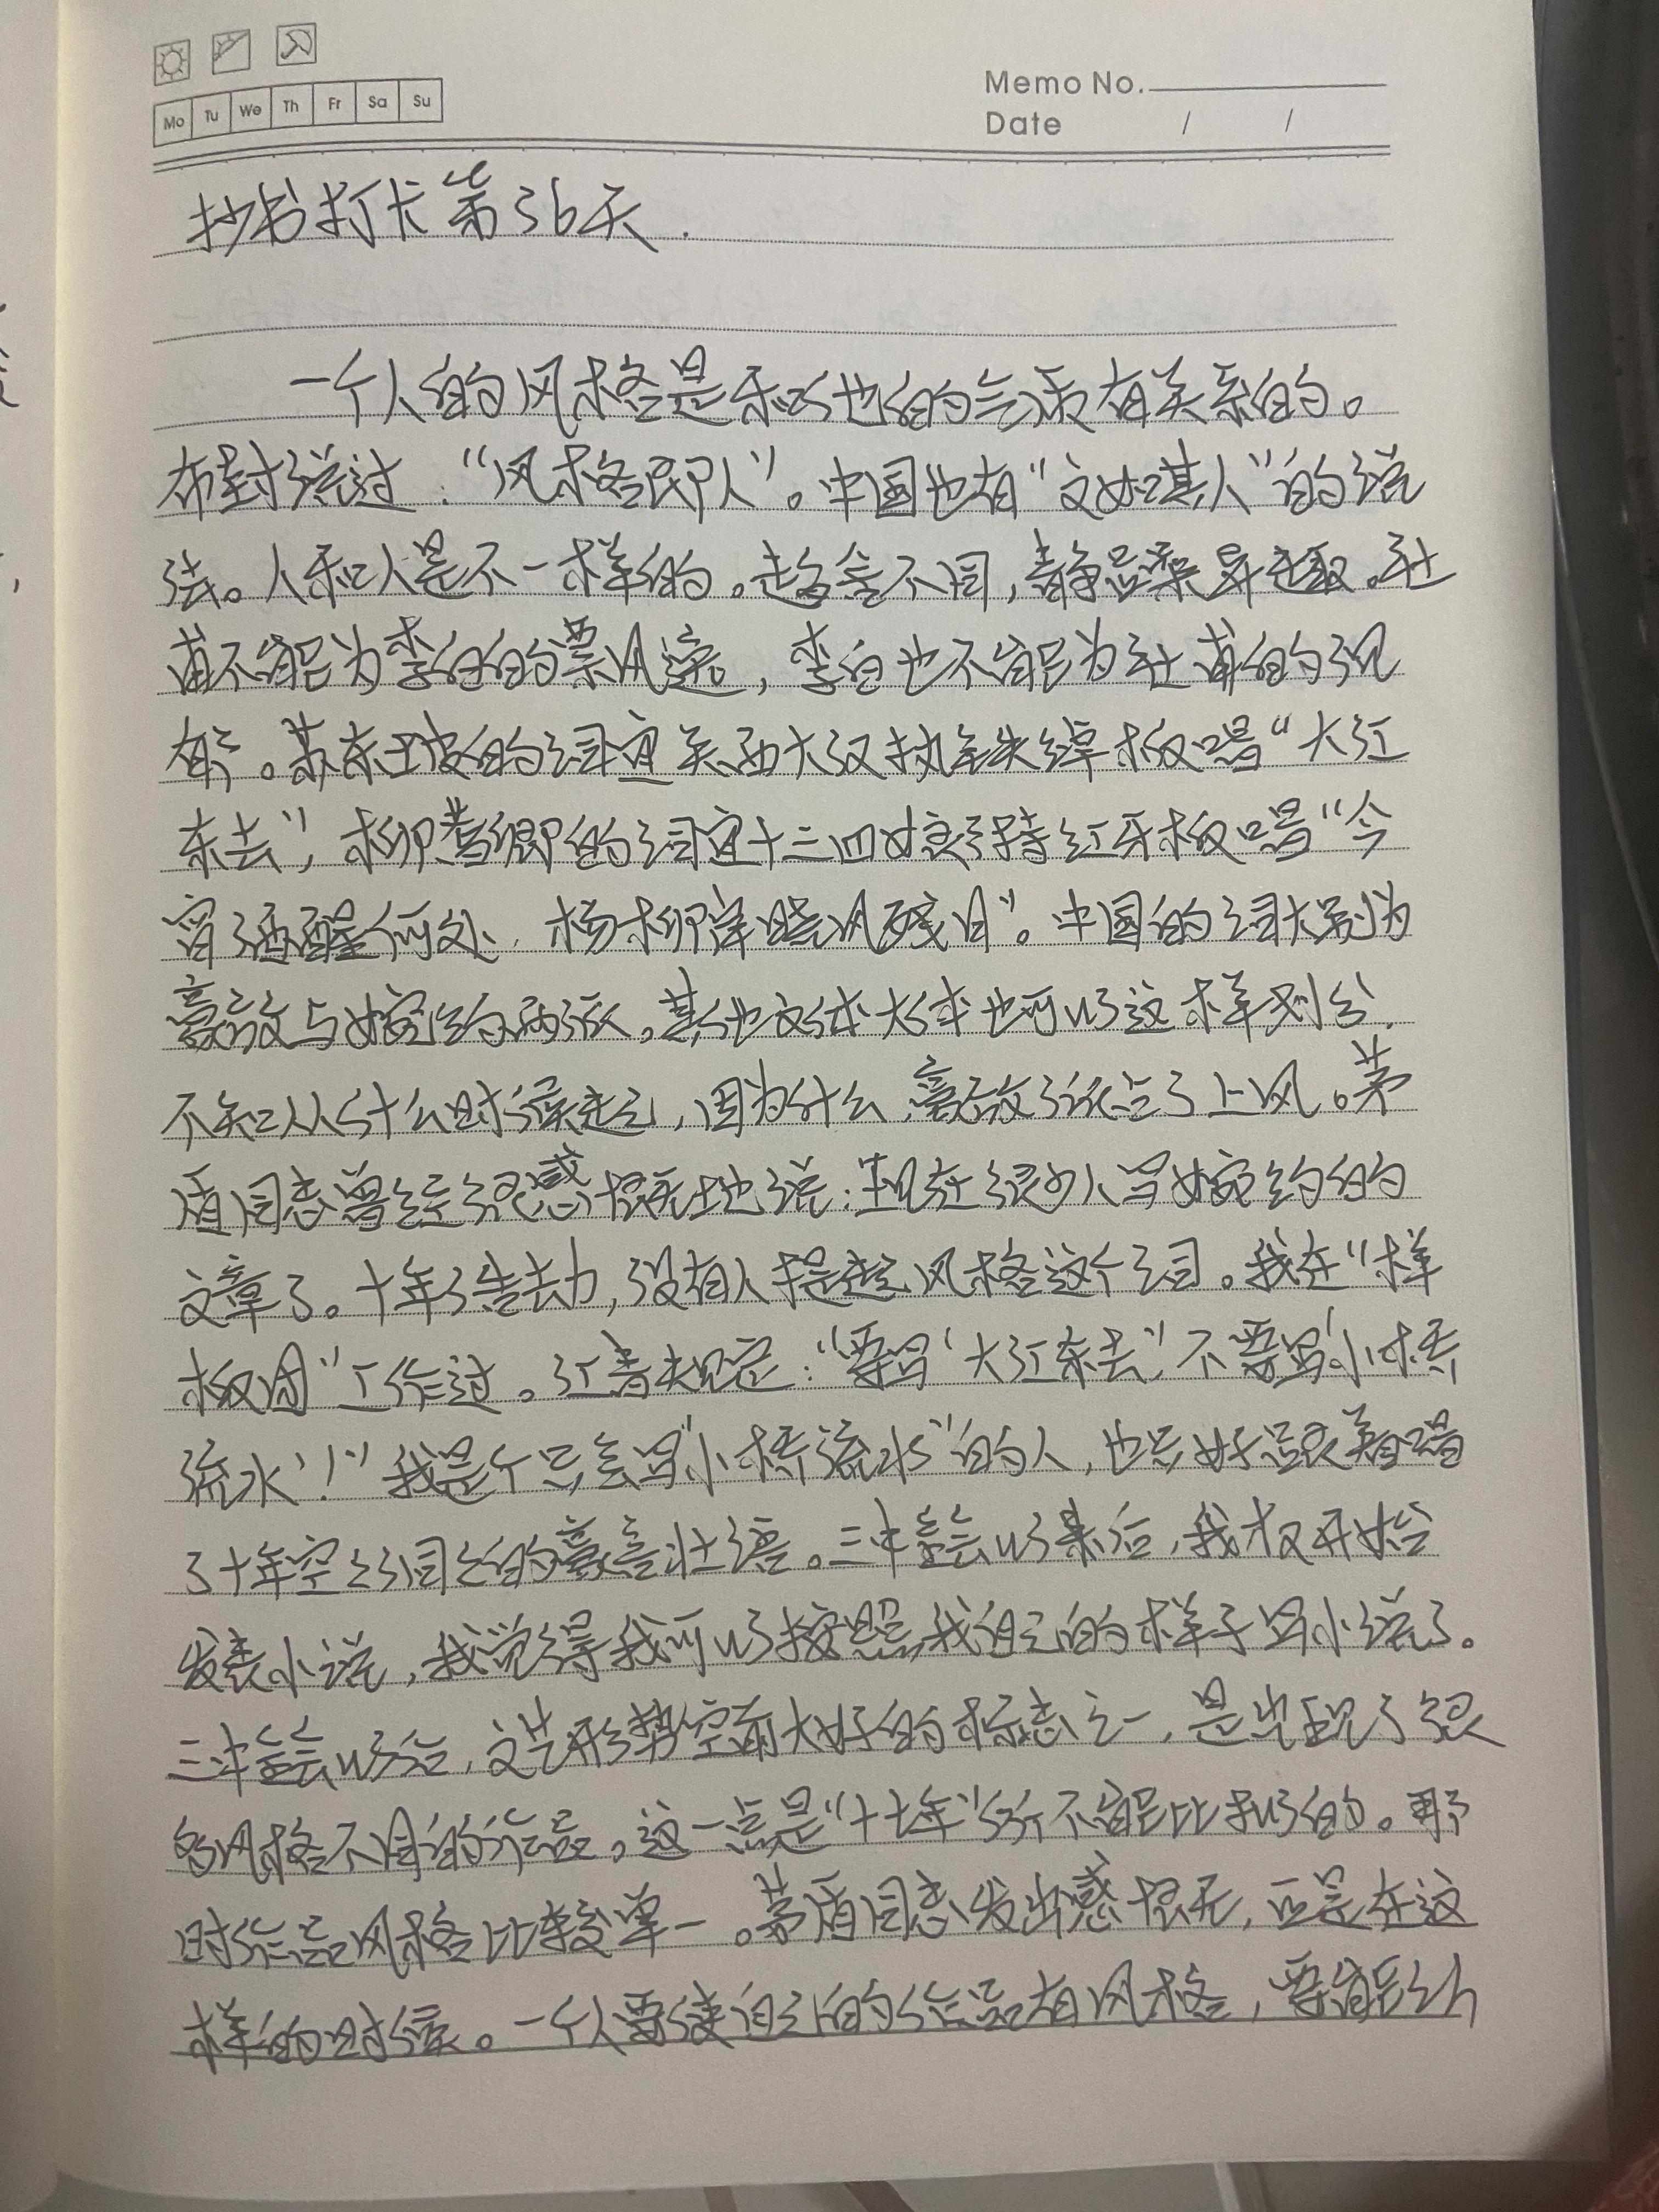 Mo Tu We Th Fr Sa Su
Memo No.
Date / /
抄书打卡第36天.
一个人的风格是和他的气质有关系的。
布封说过:“风格即人”。中国也有“文如其人”的说
法。人和人是不一样的。趋舍不同,静躁异趣。杜
甫不能为李白的飘逸,李白也不能为杜甫的沉
郁。苏东坡的词宜关西大汉执铁绰板唱“大江
东去”,柳耆卿的词宜十三四女郎持红牙板唱“今
宵酒醒何处,杨柳岸晓风残月”。中国的词大别为
豪放与婉约两派。其他文体大体也可以这样划分.
不知从什么时候起,因为什么,豪放派占了上风。茅
盾同志曾经很感慨地说:现在很少人写婉约的
文章了。十年浩劫,没有人提起风格这个词。我在“样
板团”工作过。江青规定:“要写‘大江东去’,不要写‘小桥
流水’!”我是个只会写“小桥流水”的人,也只好跟着唱
了十年空空洞洞的豪言壮语。三中全会以来后,我才又开始
发表小说,我觉得我可以按照我自己的样子写小说了。
三中全会以后,文艺形势空前大好的标志之一,是出现了很
多风格不同的作品。这一点是“十七年”所不能比拟的。那
时作品风格比较单一。茅盾同志发出感慨,正是在这
样的时候。一个人要使自己的作品有风格,要能认